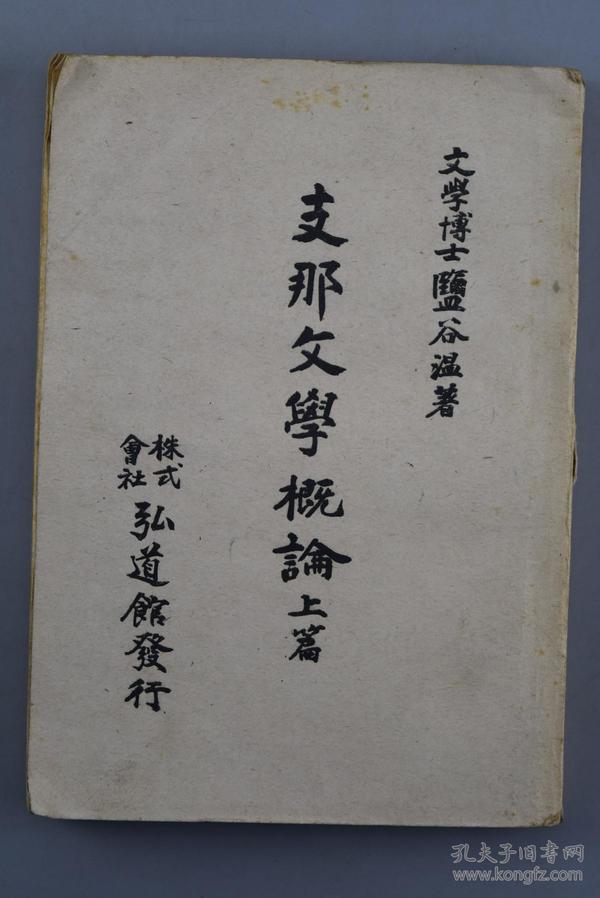 文學博士鹽谷溫著
支那文學概論上篇
株式會社弘道館發行
孔夫子旧书网
www.kongfz.com